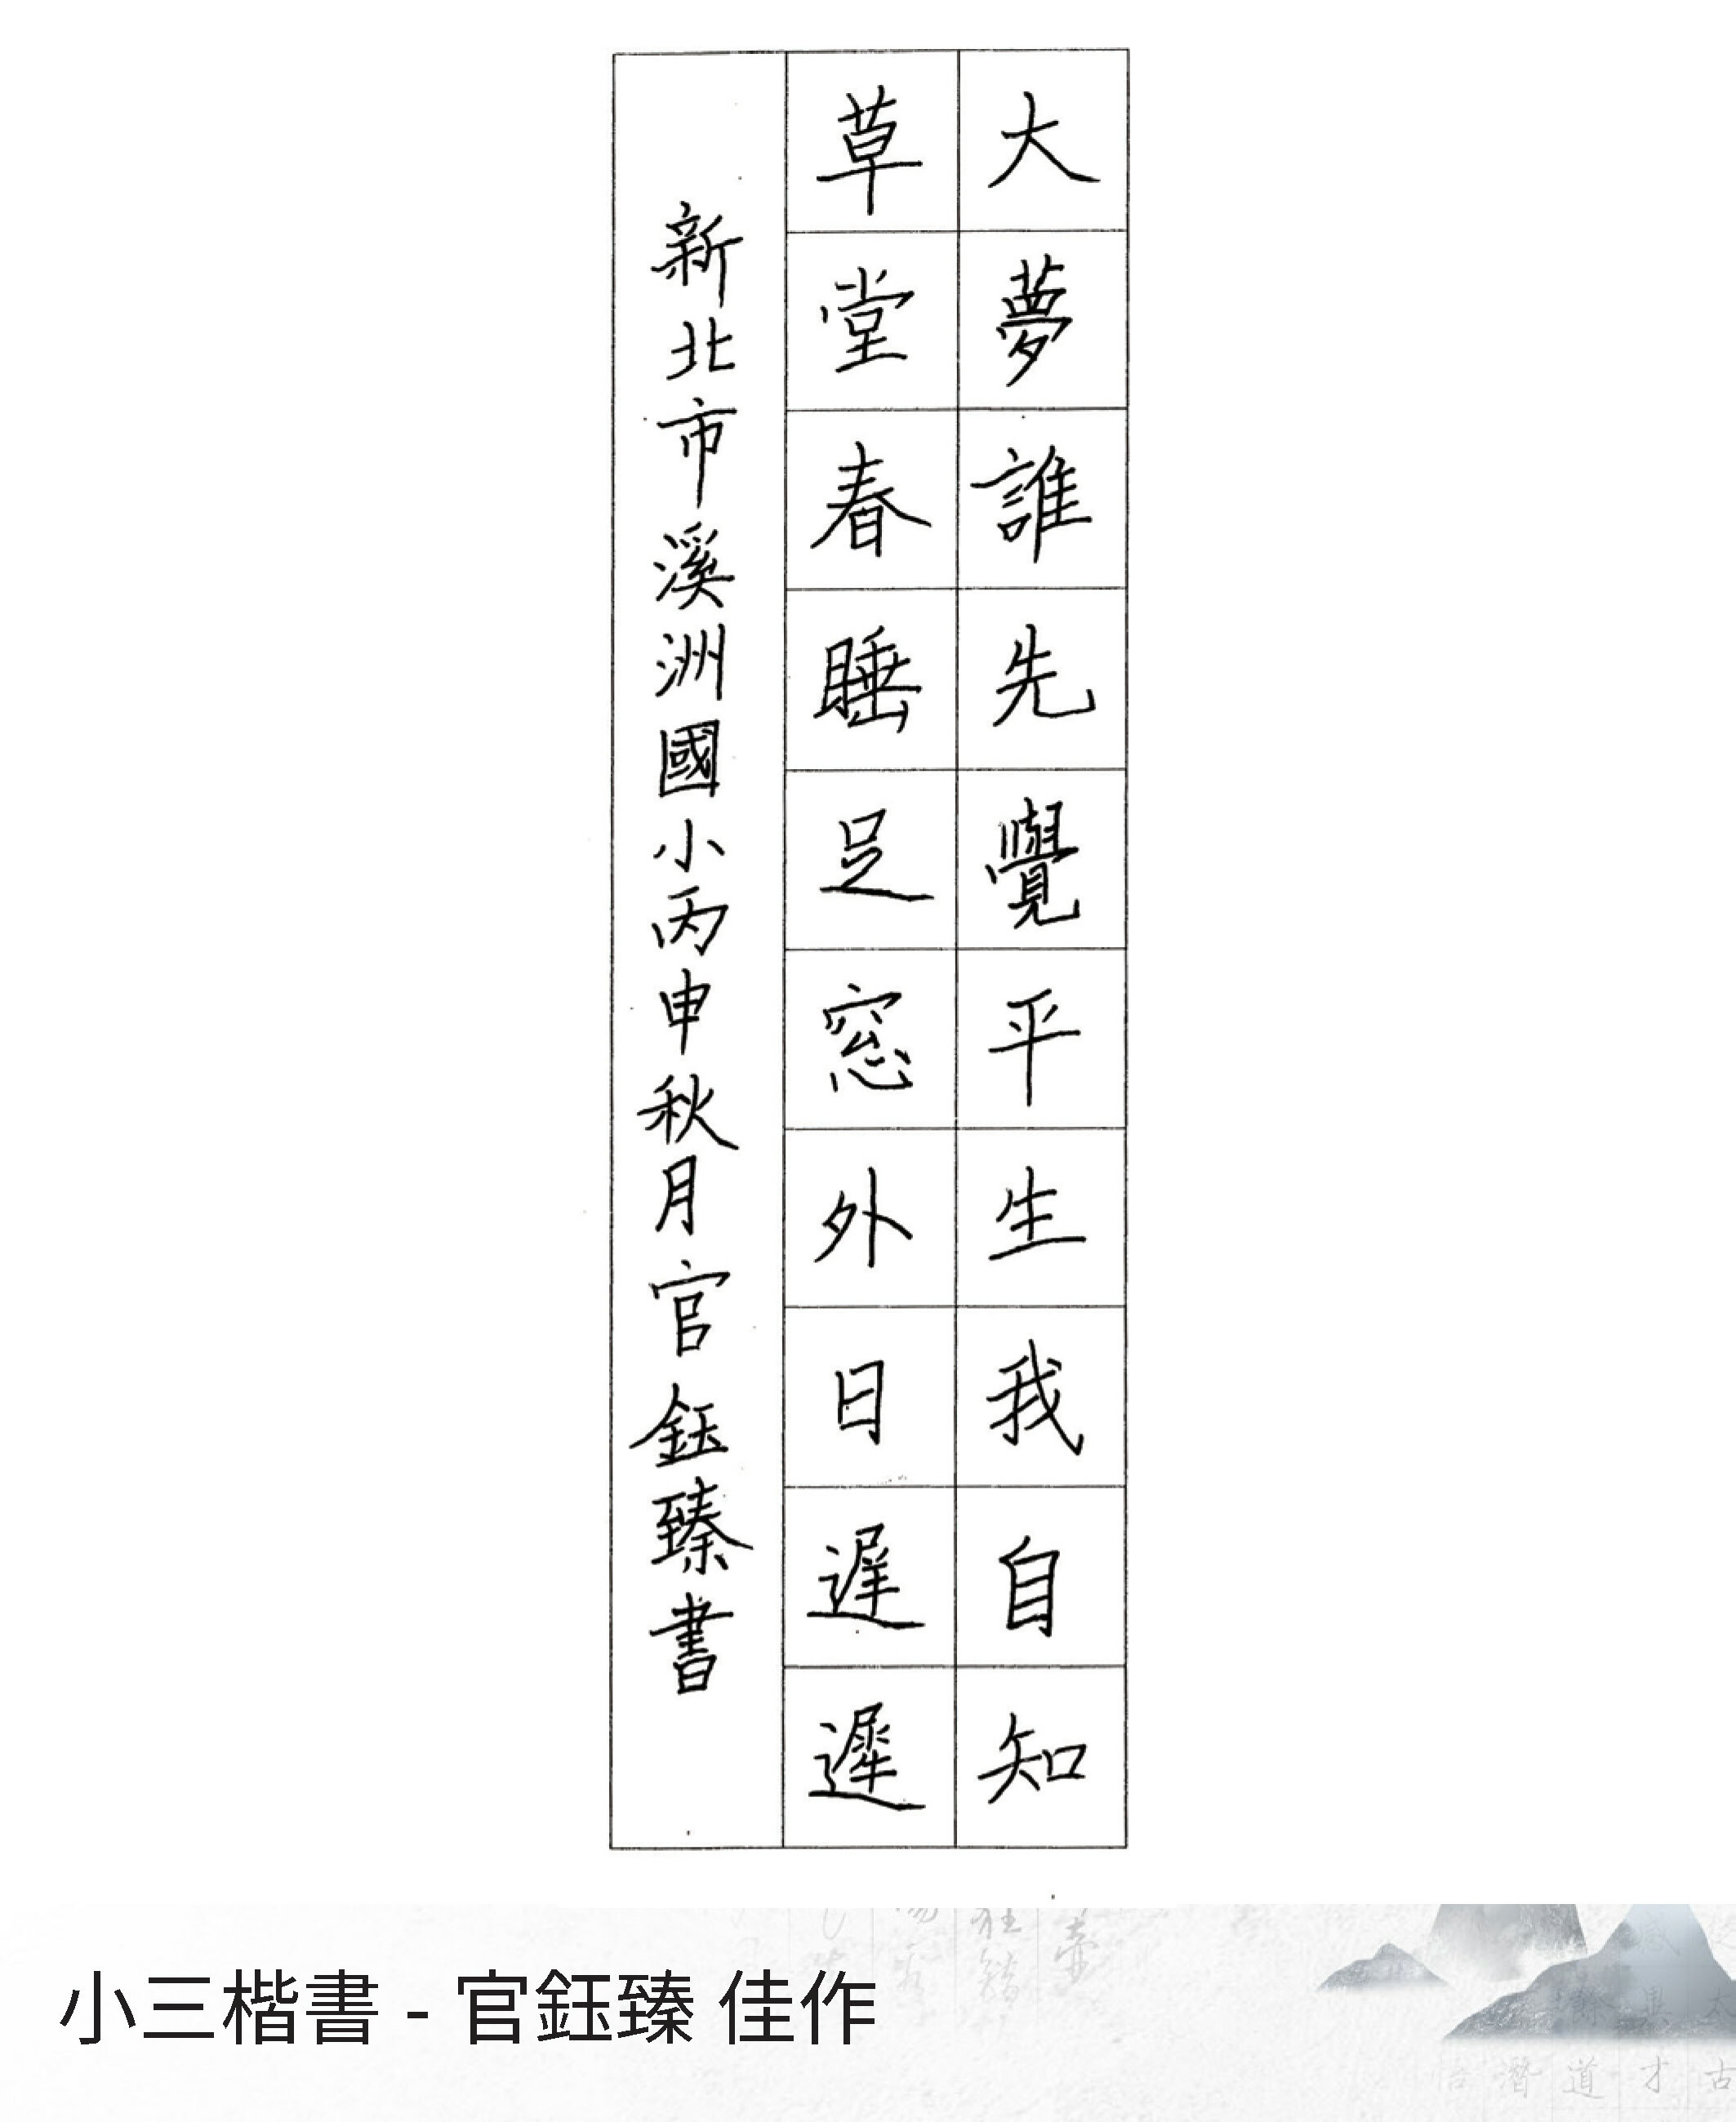 大夢誰先覺平生我自知
草堂春睡足窓外日遲遲
新北市溪洲國小丙申秋月官鈺臻書
小三楷書 - 官鈺臻 佳作